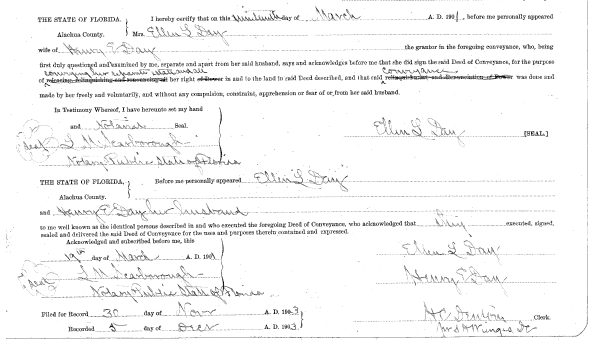 THE STATE OF FLORIDA, I hereby certify that on this nineteenth day of March A. D. 1901, before me personally appeared
Alachua County. Mrs. Ellen L Day
wife of Henry E Day the grantor in the foregoing conveyance, who, being
first duly questioned and examined by me, seperate and apart from her said husband, says and acknowledges before me that she did sign the said Deed of Conveyance, for the purpose
conveying her separate estate and all conveyance
of her right of Dower in and to the land in said Deed described, and that said was done and
made by her freely and voluntarily, and without any compulsion, constraint, apprehension or fear of or from her said husband.
In Testimony Whereof, I have hereunto set my hand
and Notarial Seal. Ellen L Day [SEAL.]
Seal L M Scarborough
Notary Public State of Florida
THE STATE OF FLORIDA, Before me personally appeared Ellen L Day
Alachua County.
and Henry E Day her husband
to me well known as the identical persons described in and who executed the foregoing Deed of Conveyance, who acknowledged that they executed, signed,
sealed and delivered the said Deed of Conveyance for the uses and purposes therein contained and expressed.
Acknowledged and subscribed before me, this Ellen L Day
19th day of March A. D. 1901
Seal L M Scarborough Henry E Day
Notary Public State of Florida
Filed for Record 30 day of Novr A. D. 1903 Clerk.
Recorded 5 day of Decr A. D. 1903